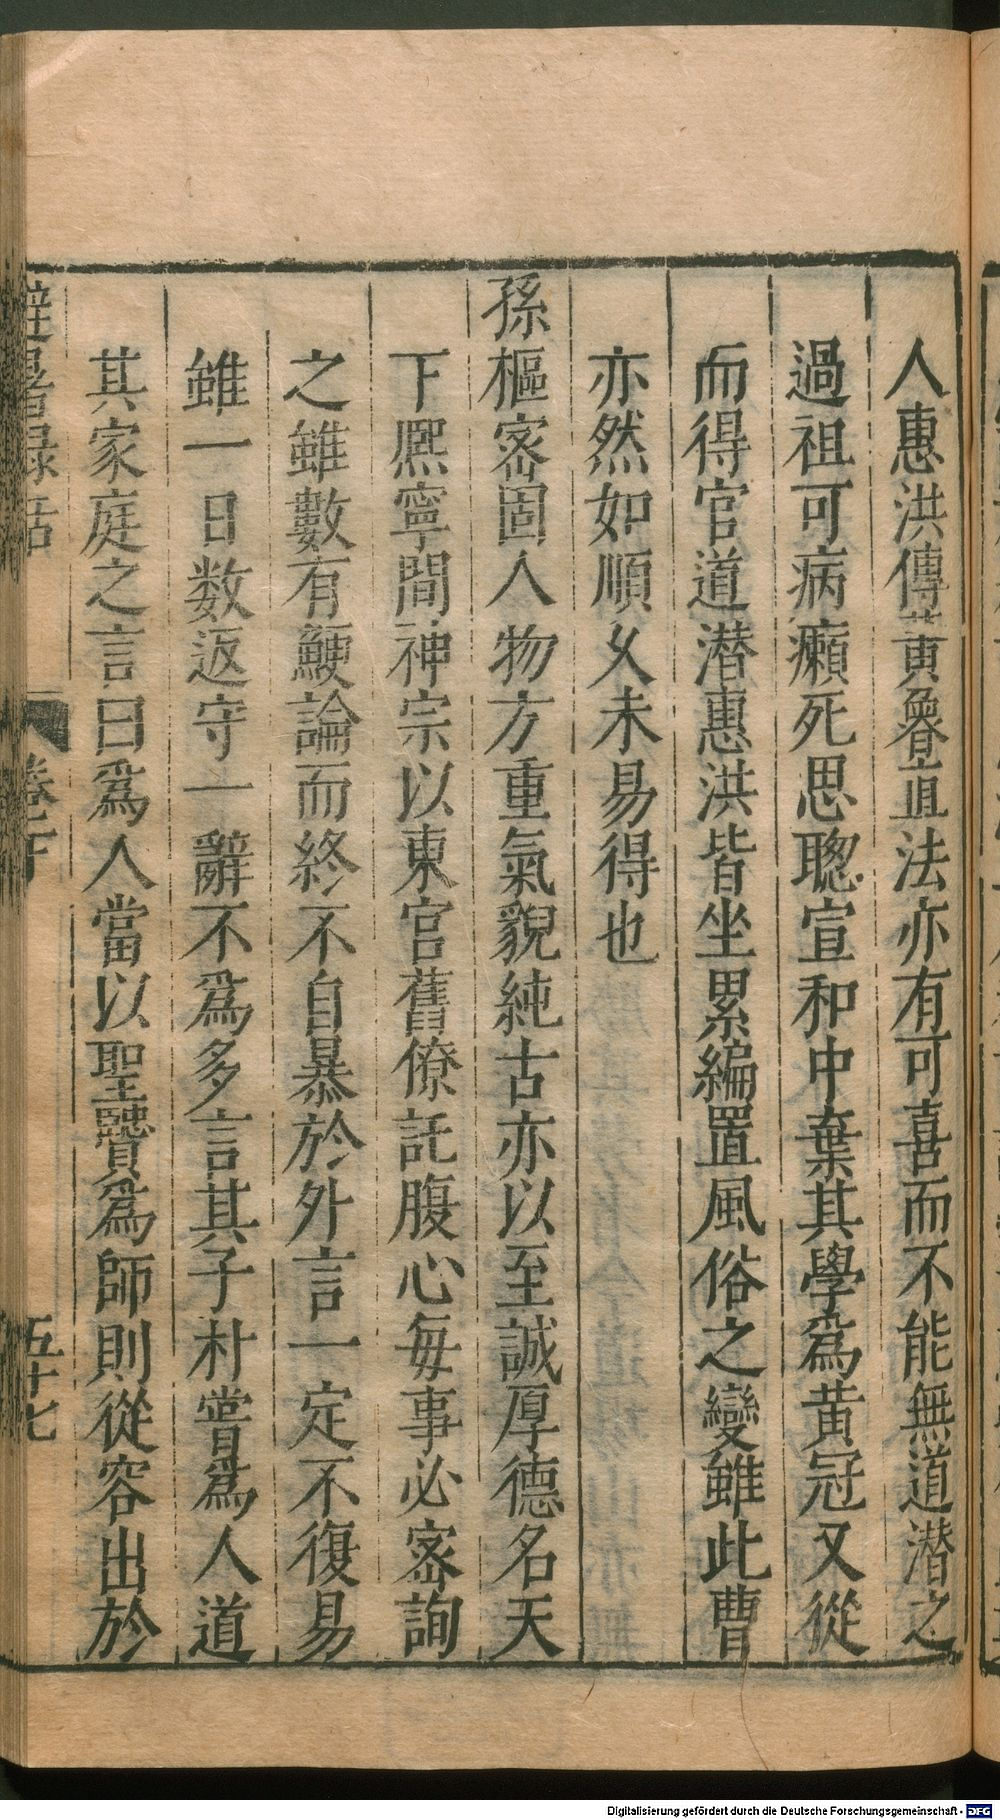 人惠洪傳黄魯直法亦有可喜而不能無道潜之
過祖可病癩死思聦宣和中棄其學爲黄冠又從
而得官道潜惠洪皆坐累編置風俗之變雖此曹
亦然如順乆未易得也
孫樞宻固人物方重氣貌純古亦以至誠厚德名天
下熈寧間神宗以東宫舊僚託腹心毎事必宻詢
之雖數有鯁論而終不自暴於外言一定不復易
雖一日数返守一辭不爲多言其子朴嘗爲人道
其家庭之言曰爲人當以聖賢爲師則從容出於
避暑録話
卷下
五十七
Digitalisierung gefördert durch die Deutsche Forschungsgemeinschaft - DFG